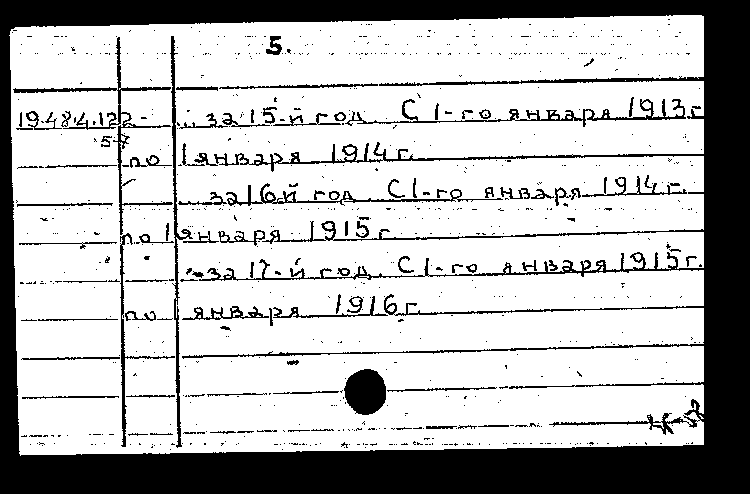 5.
19.48.4.122- ... за 15-й год С 1-го января 1913г
5-7
по 1 января 1914 г.
... за 16-й год С 1-го января 1914 г.
по 1 января 1915 г
"-за 17-й год. С 1-го января 1915 г.
по 1 января 1916 г.